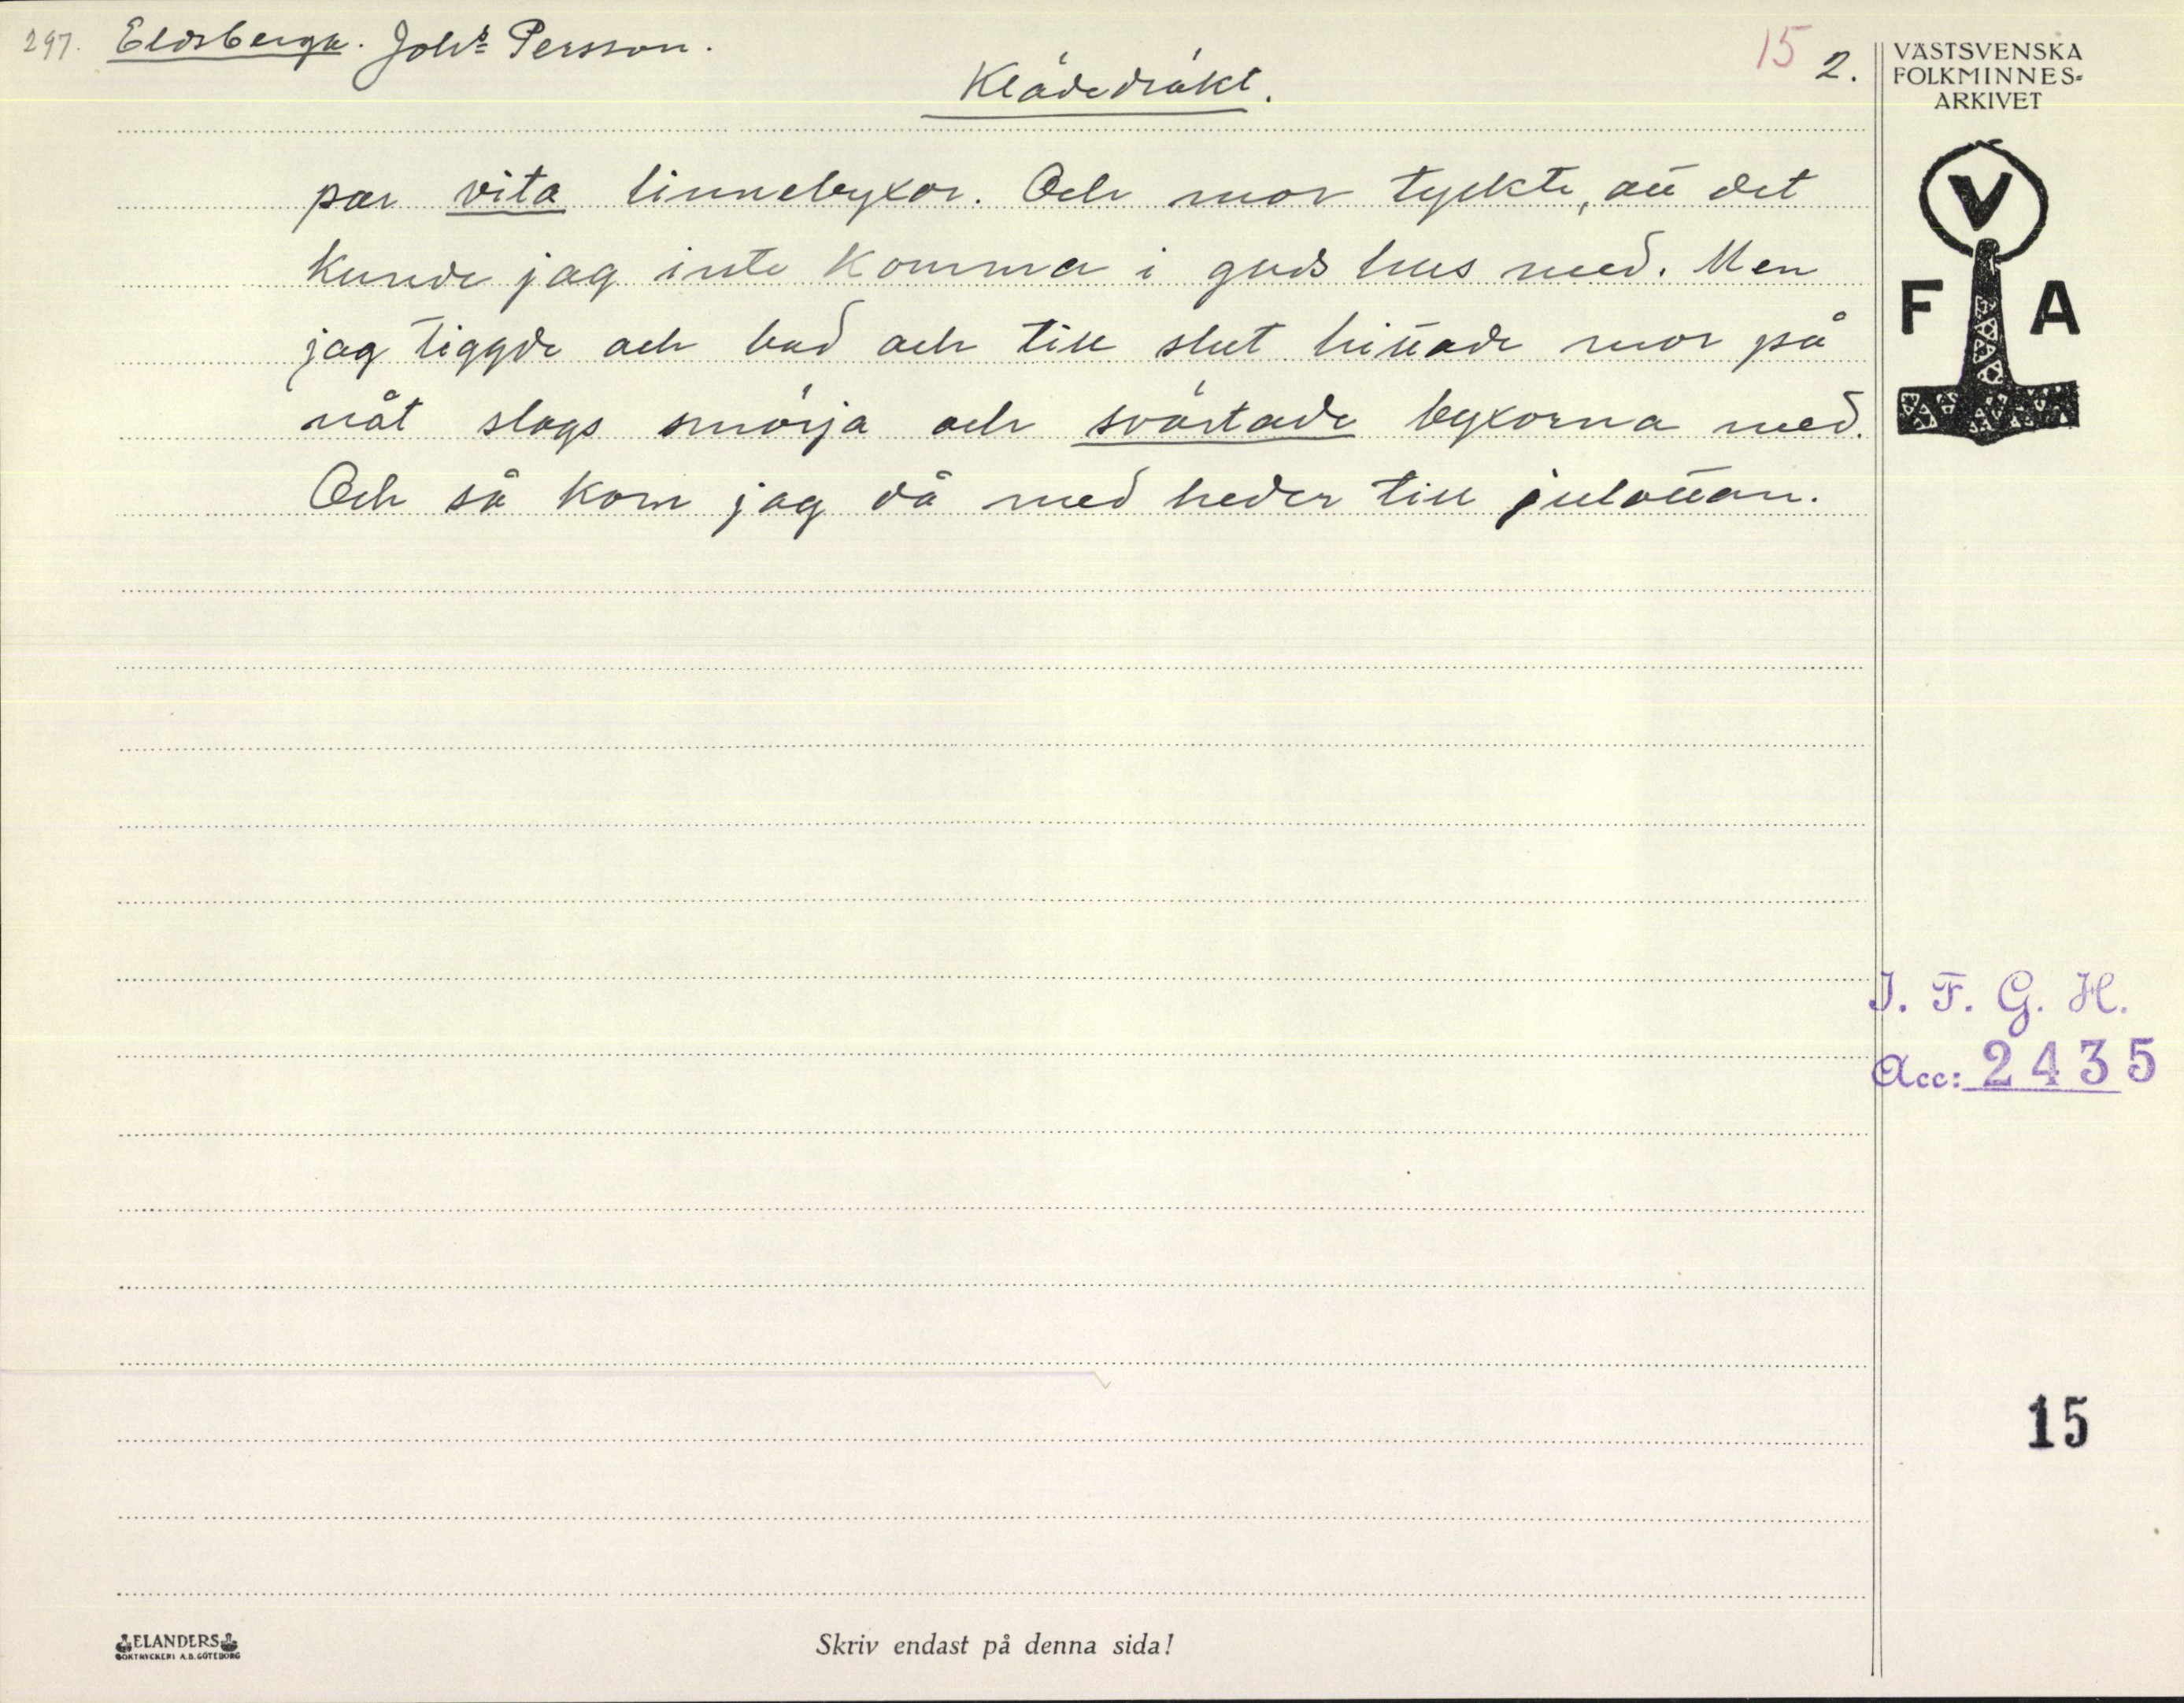 297. Eldsberga. Johs Persson.
15 2.
Klädedräkt.
VÄSTSVENSKA
FOLKMINNES=
ARKIVET
V
F A
par vita linnebyxor. Och mor tyckte, att det
kunde jag inte komma i guds hus med. Men
jag tiggde och bad och till slut hittade mor på
nåt slags smörja och svärtade byxorna med.
Och så kom jag då med heder till julottan.
I. F. G. H.
Acc: 2435
15
ELANDERS
BOKTRYCKERI A.B. GÖTEBORG
Skriv endast på denna sida!